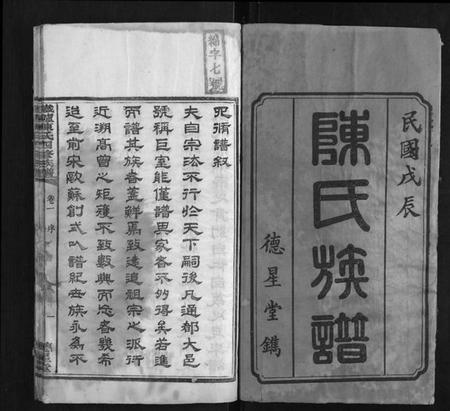 民國戊辰
陳氏族譜
德星堂鐫
福字七號
四修譜叙
夫自宗法不行於天下嗣後凡通都大邑
號稱巨室能僅譜異家者不多得矣若進
而譜其族者蓋鮮焉致遠追祖宗之派衍
近溯高曾之矩矱不致數典而忘者幾希
迨至前宋歐蘇創式以譜紀世族永為不
陳氏四修族譜
卷一 序
一